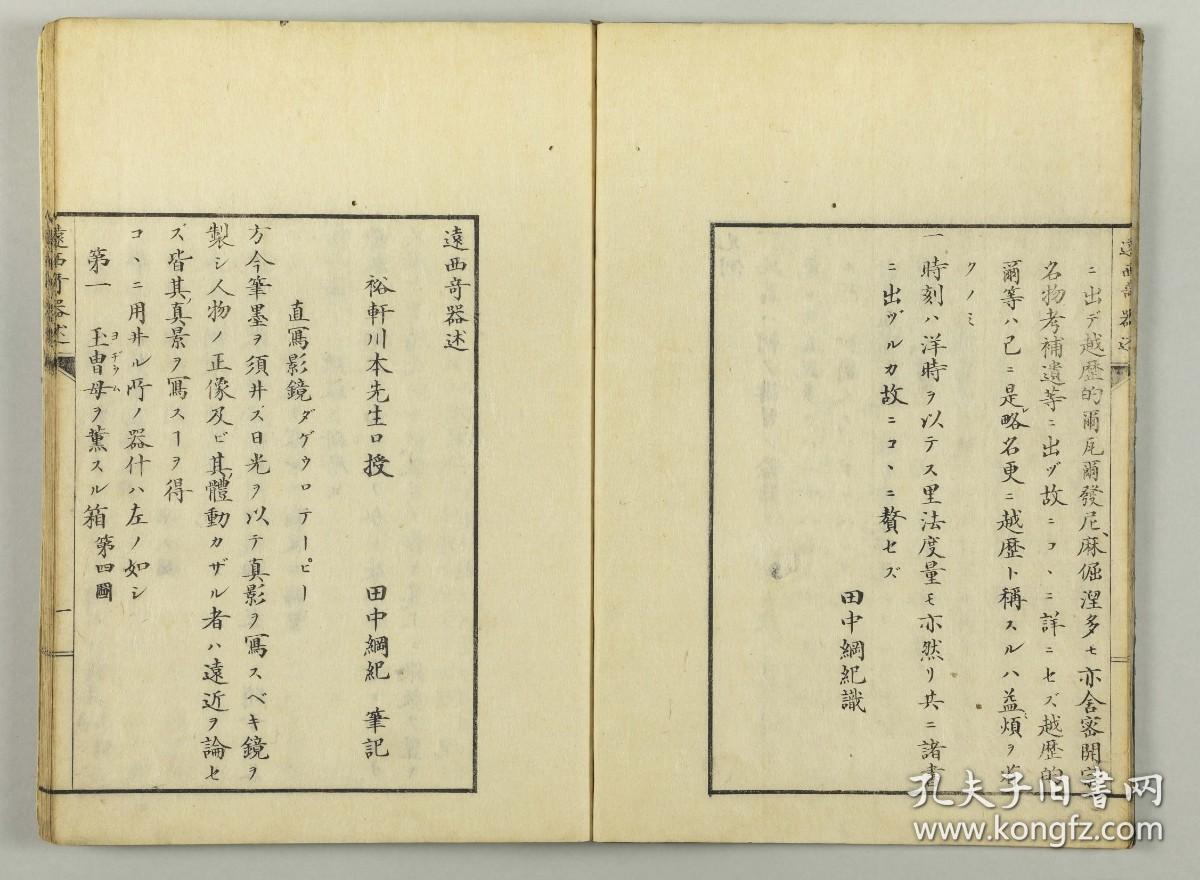 ニ出デ越歴的爾瓦爾發尼、麻倔涅多モ亦舎密開宗
名物考補遺等ニ出ヅ故ニコヽニ詳ニセズ越歴的
爾等ハ已ニ是略名更ニ越歴ト稱スルハ益煩ヲ
クノミ
一時刻ハ洋時ヲ以テス里法度量モ亦然リ共ニ諸書
ニ出ヅルカ故ニコヽニ贅セズ
田中綱紀識
遠西奇器述
遠西奇器述
裕軒川本先生口授 田中綱紀 筆記
直寫影鏡ダゲウロテーピー
方今筆墨ヲ須井ズ日光ヲ以テ真影ヲ寫スベキ鏡ヲ
製シ人物ノ正像及ビ其體動カザル者ハ遠近ヲ論セ
ズ皆其真景ヲ寫スヿヲ得
コヽニ用井ル所ノ器什ハ左ノ如シ
第一 玉曹母ヲ薫スル箱 第四圖
ヨヂウム
遠西奇器述
一
孔夫子旧书网
www.kongfz.com